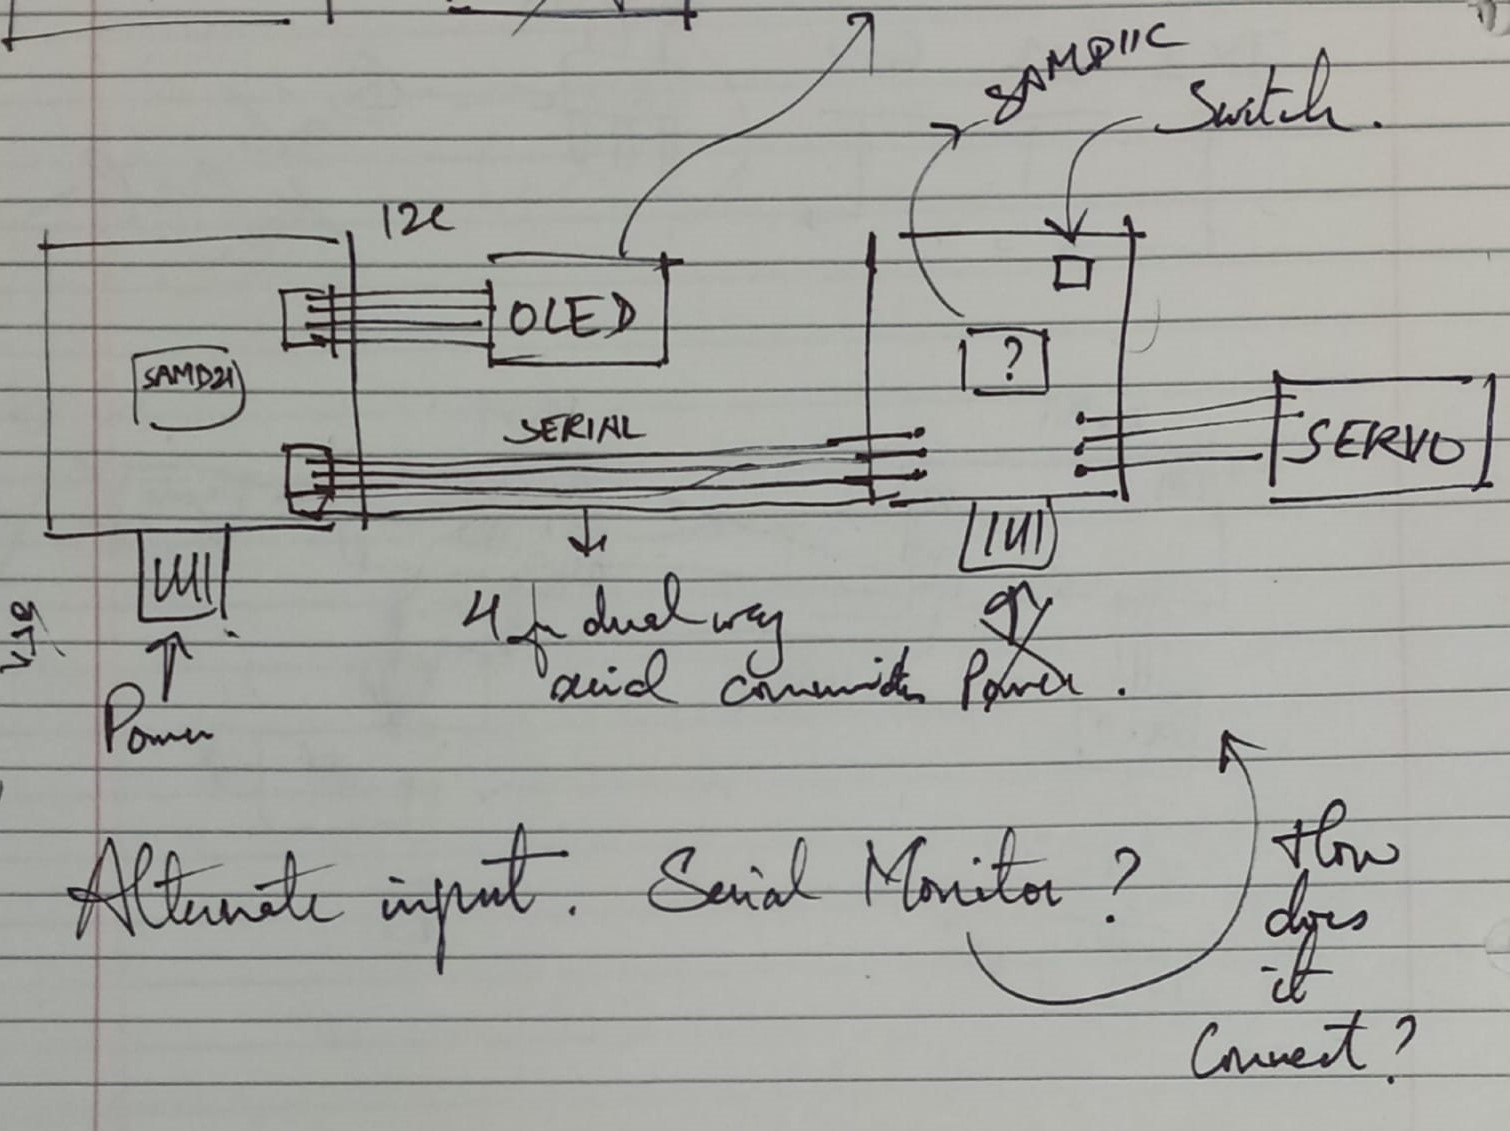 SAMD11C
Switch.
I2C
OLED
SAMD21
?
SERIAL
SERVO
4 for dual way
serial communication
Power.
Power
Alternate input. Serial Monitor ?
How
does
it
Connect?